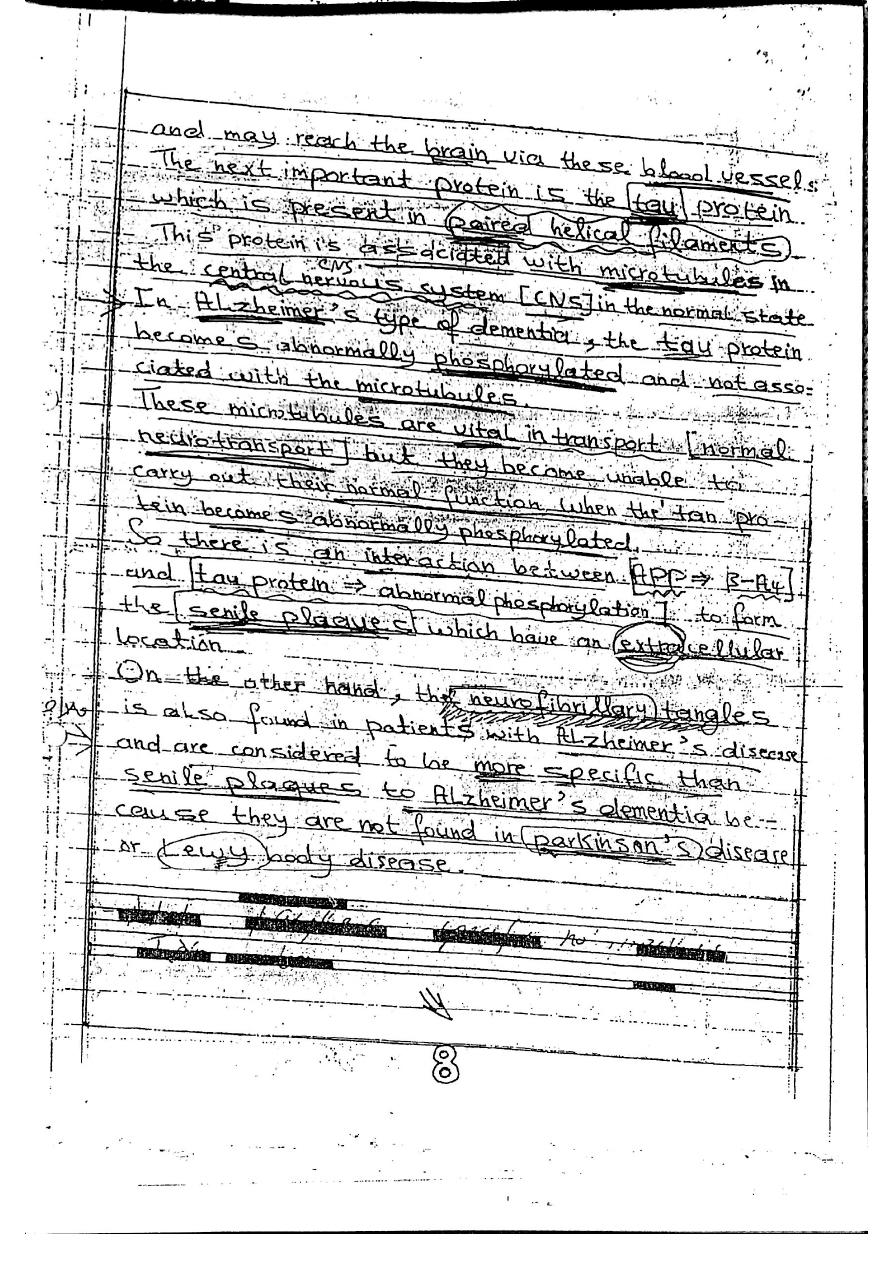 and may reach the brain via these blood vessels.
The next important protein is the [tau] protein
which is present in (paired helical filaments)
This protein is associated with microtubules in
CNS
the central nervous system [CNS] in the normal state
In ALzheimer's type of dementia, the tau protein
becomes abnormally phosphorylated and not asso-
ciated with the microtubules.
These microtubules are vital in transport [normal
neurotransport] but they become unable to
carry out their normal function when the tan pro-
tein becomes abnormally phosphorylated.
So there is an interaction between [APP ⇒ B-A4]
and [tau protein ⇒ abnormal phosphorylation] to form
the [senile plaques] which have an extracellular
location.
On the other hand, the neurofibrillary tangles
is also found in patients with ALzheimer's disease
and are considered to be more specific than
senile plaques to ALzheimer's dementia be-
cause they are not found in (parkinson's) disease
or (Lewy) body disease.
8